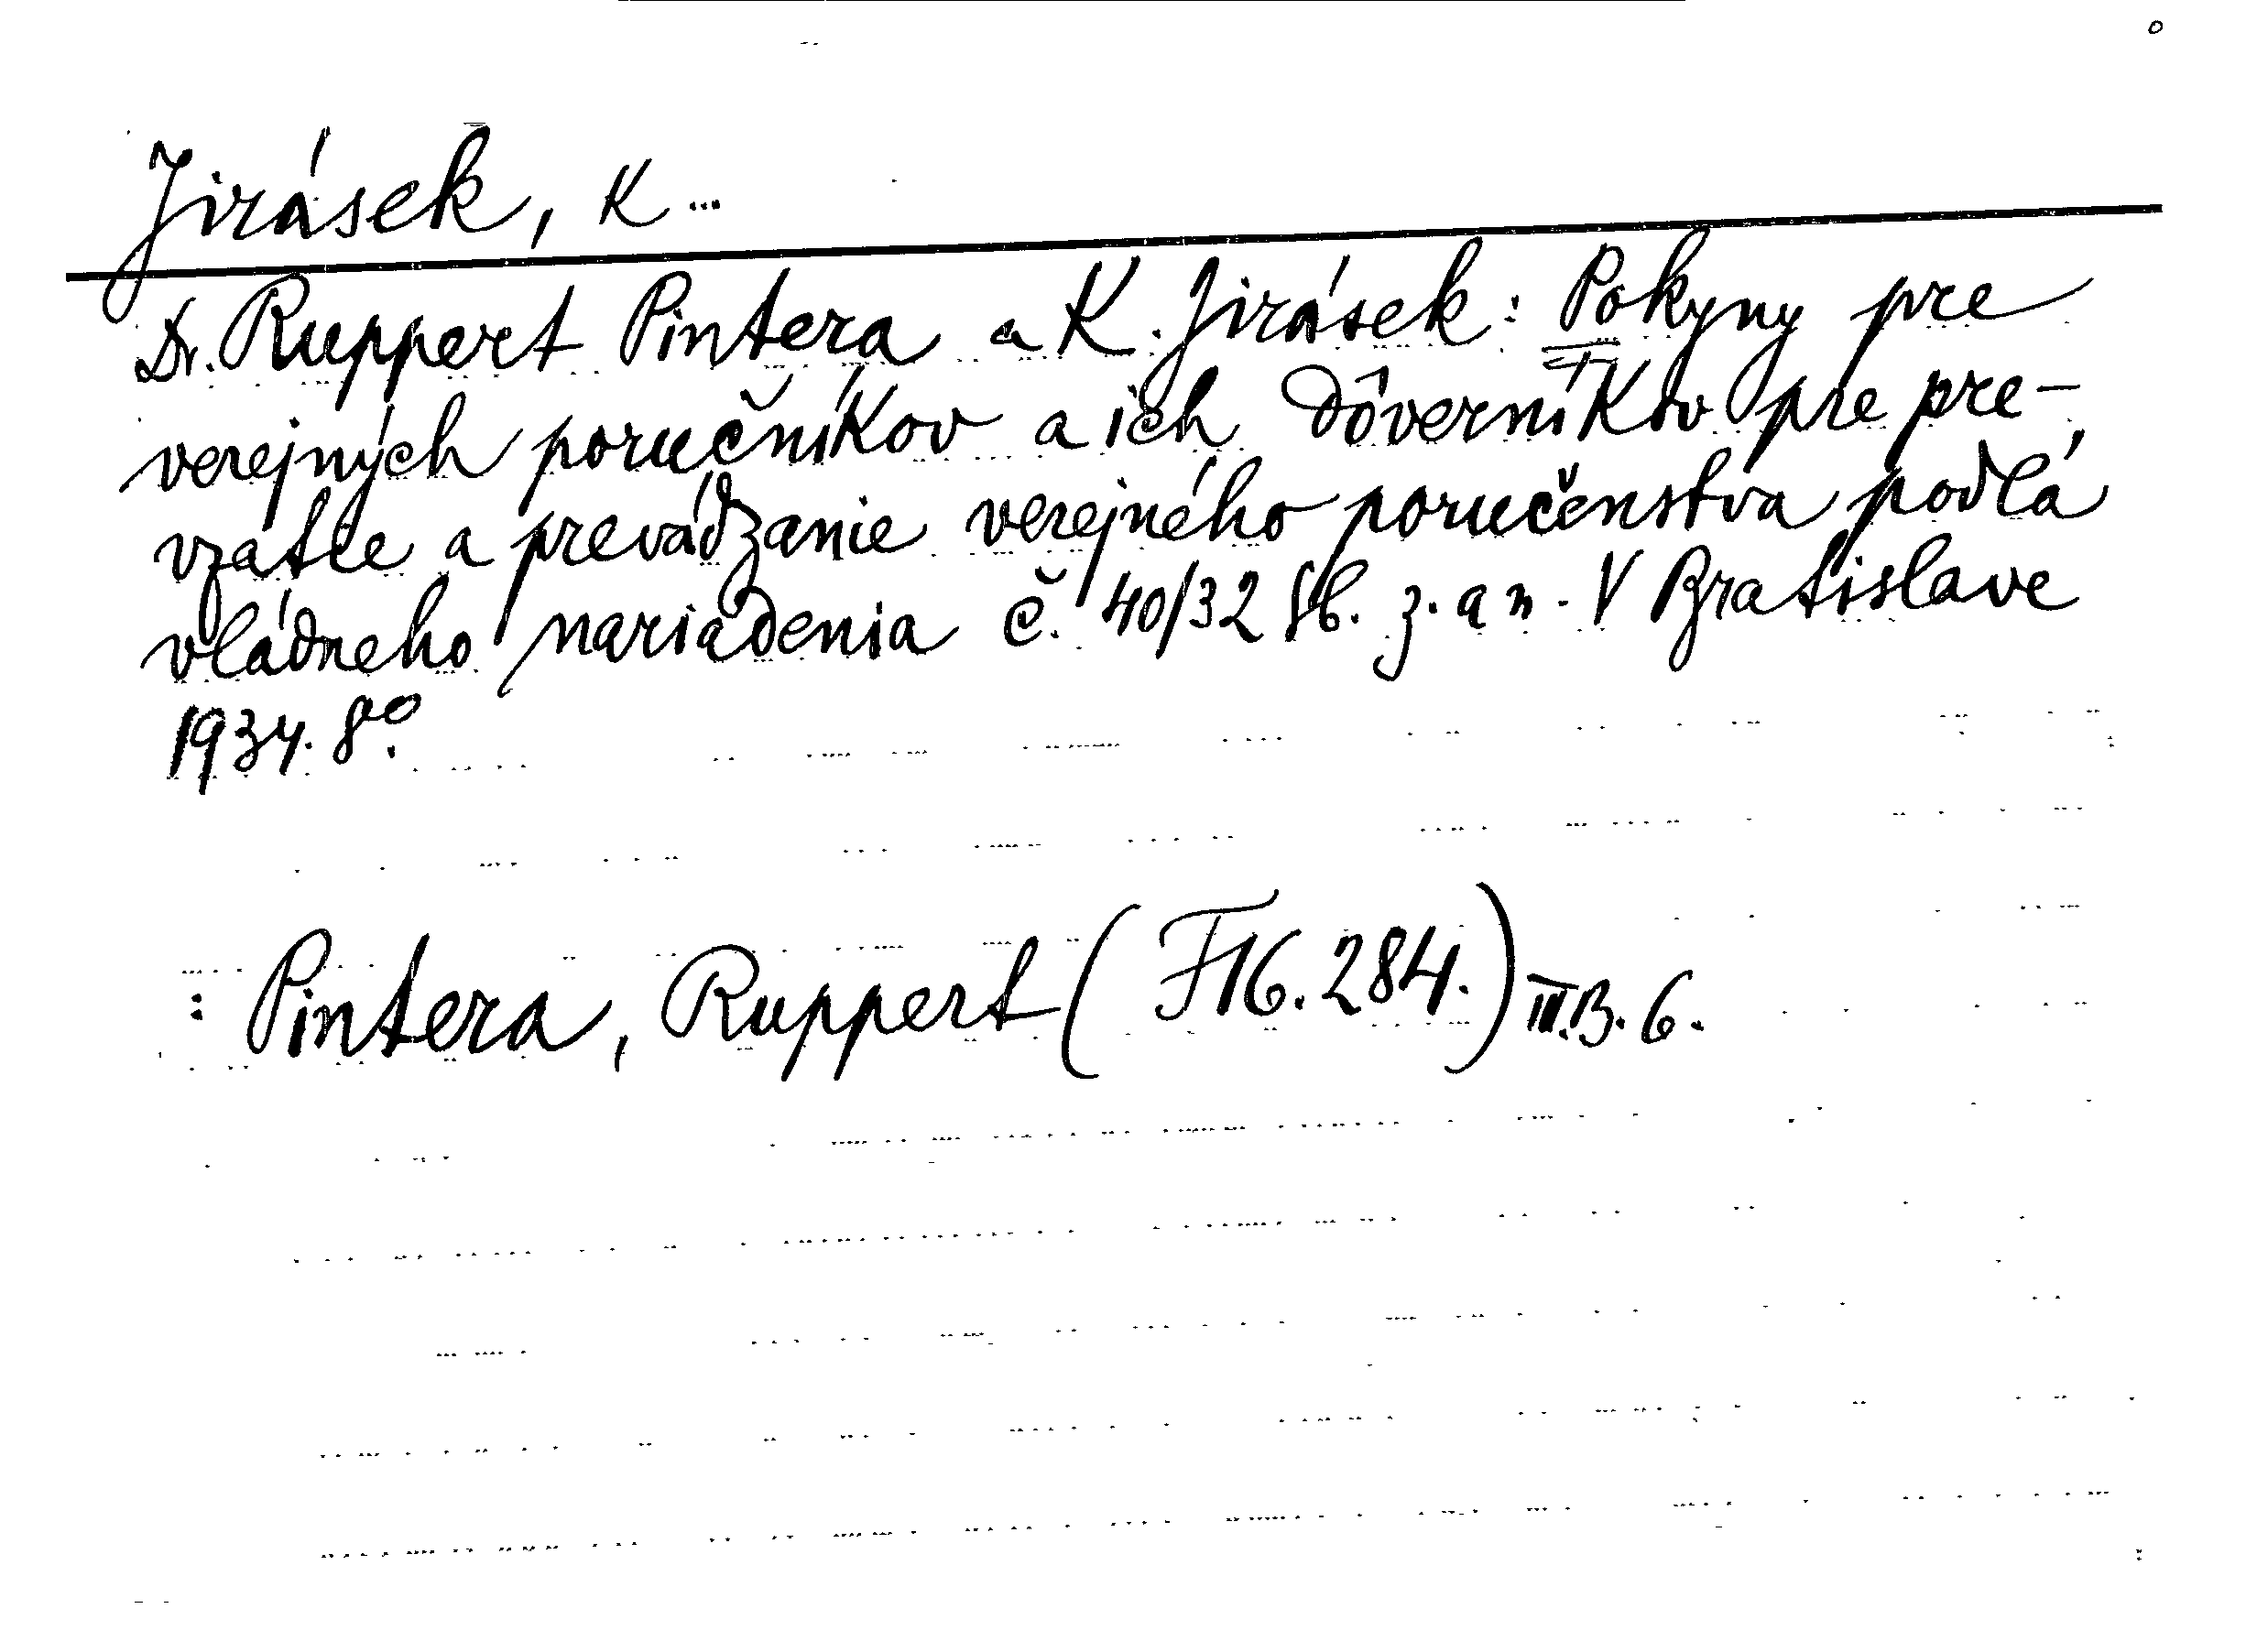 Jirásek, K...
Dr. Ruppert Pintera a K. Jirásek: Pokyny pre
verejných poručníkov a ich dôverníkov pre pre-
vzatie a prevádzanie verejného poručenstva podľa
vládneho nariadenia č. 40/32 Sb. z. a n. V Bratislave
1934. 8°.
: Pintera, Ruppert (F16.284.) III.B.6.